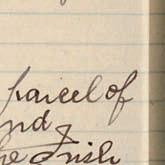 parcel of
nd
he Irish